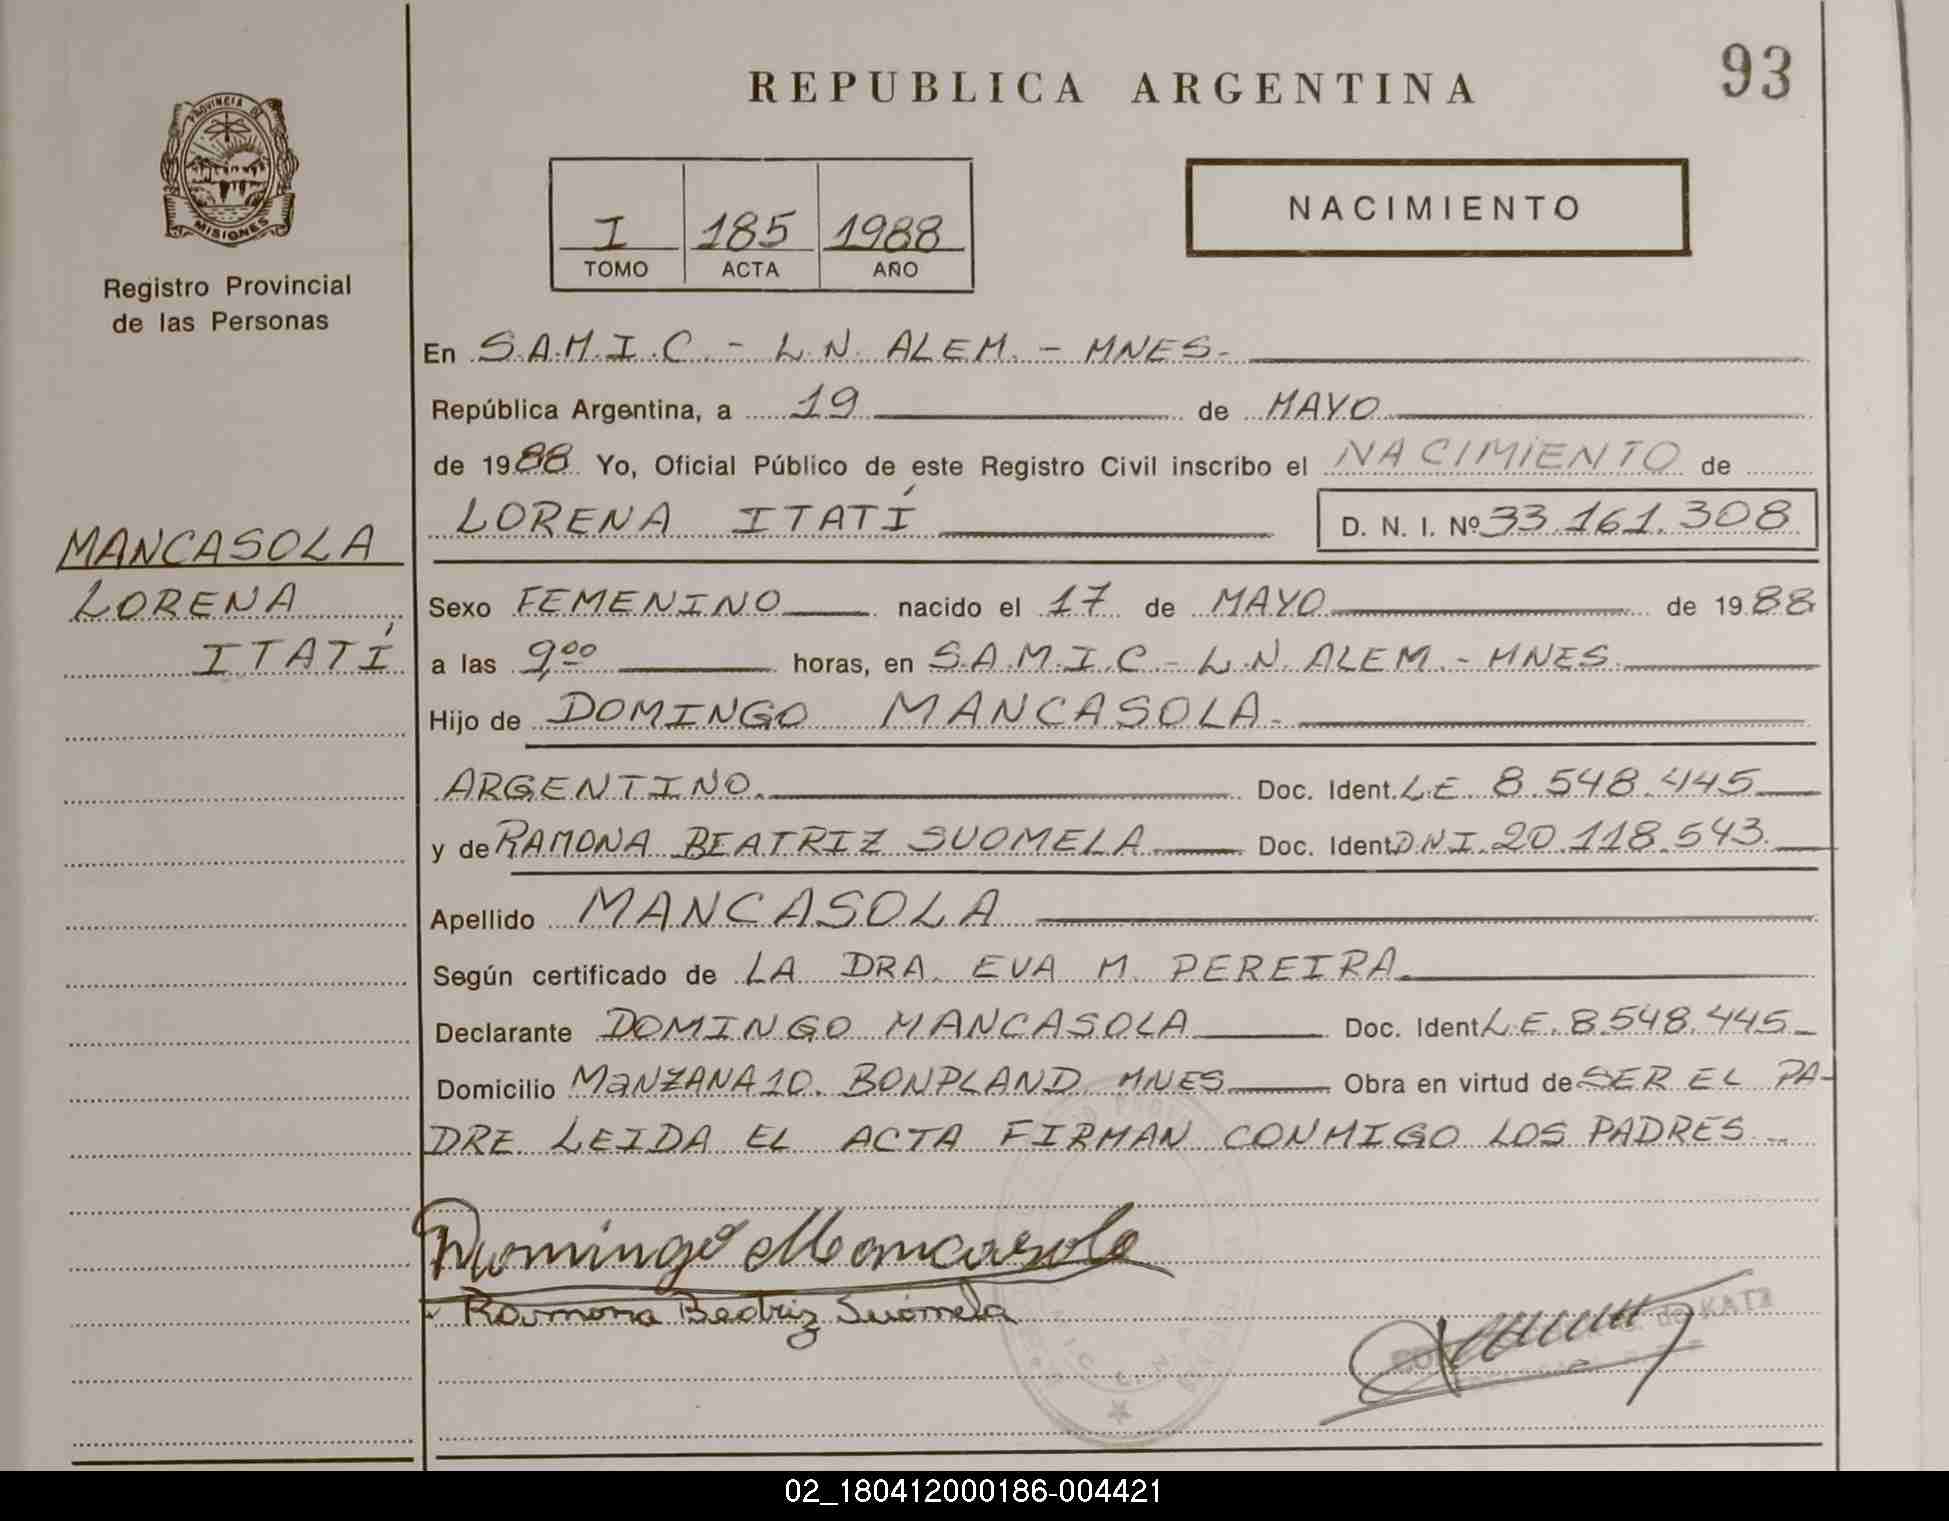 93
REPUBLICA ARGENTINA
PROVINCIA DE
MISIONES
Registro Provincial
de las Personas
I 185 1988
TOMO ACTA AÑO
NACIMIENTO
En S.A.M.I.C. - L.N. ALEM. - MNES.
República Argentina, a 19 de MAYO
de 1988 Yo, Oficial Público de este Registro Civil inscribo el NACIMIENTO de
LORENA ITATÍ D. N. I. Nº 33.161.308
MANCASOLA
LORENA
ITATÍ
Sexo FEMENINO nacido el 17 de MAYO de 1988
a las 9,00 horas, en S.A.M.I.C - L.N. ALEM. - MNES.
Hijo de DOMINGO MANCASOLA.
ARGENTINO. Doc. Ident. L.E. 8.548.445
y de RAMONA BEATRIZ SUOMELA Doc. Ident. DNI. 20.118.543.
Apellido MANCASOLA
Según certificado de LA DRA. EVA M. PEREIRA.
Declarante DOMINGO MANCASOLA Doc. Ident. L.E. 8.548.445
Domicilio MANZANA 10. BONPLAND MNES Obra en virtud de SER EL PA-
DRE. LEIDA EL ACTA FIRMAN CONMIGO LOS PADRES.
Domingo Mancasola
Ramona Beatriz Suomela
de KATZ
02_180412000186-004421